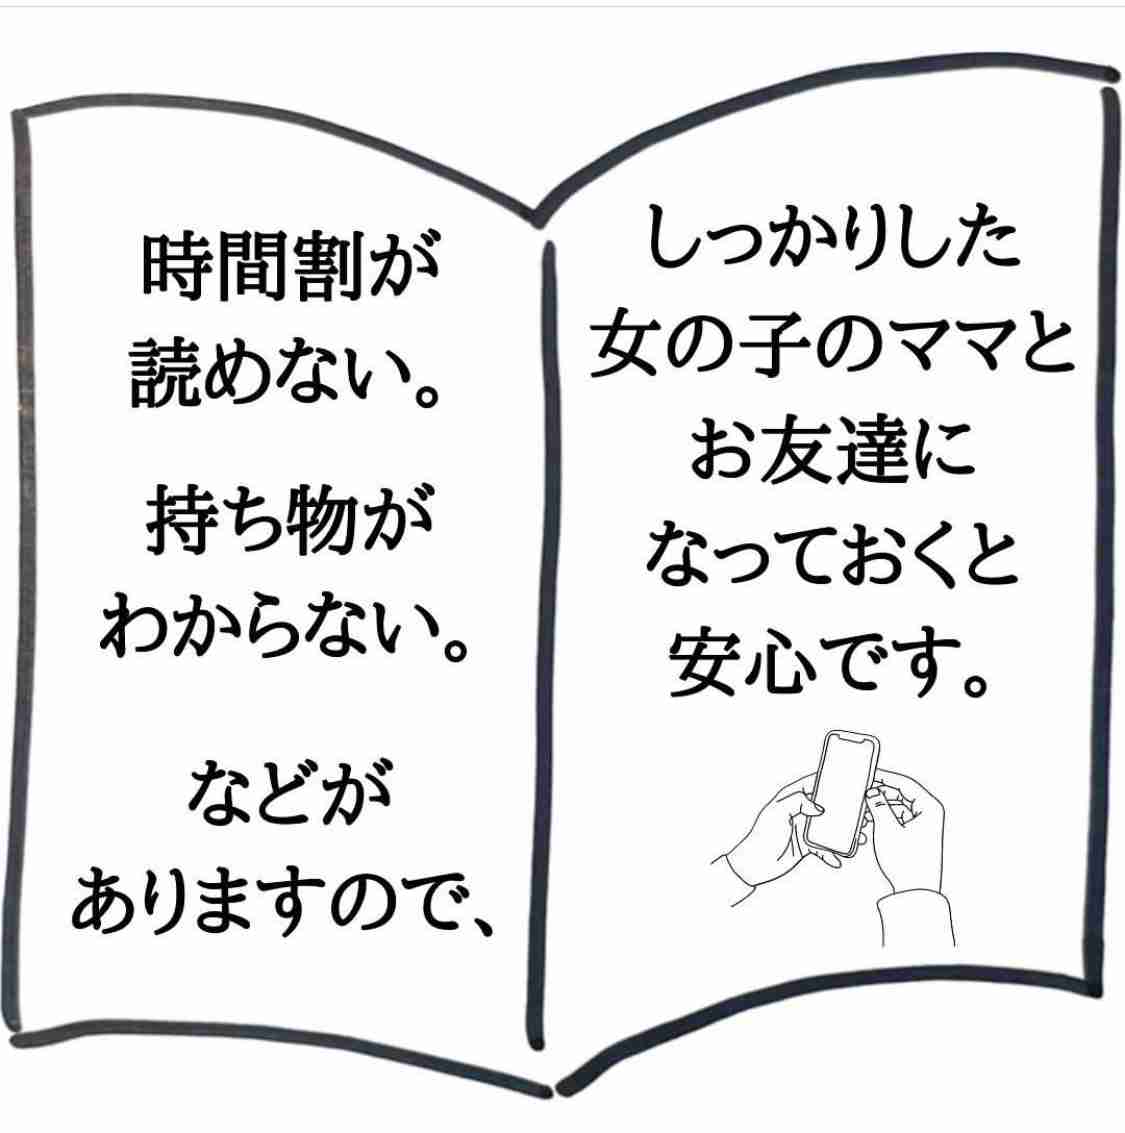 時間割が
読めない。
持ち物が
わからない。
などが
ありますので、
しっかりした
女の子のママと
お友達に
なっておくと
安心です。